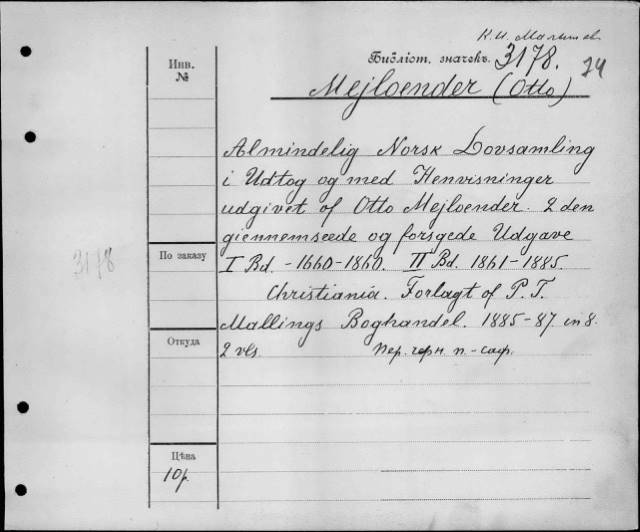 К. И. Малышев
Библіот. значекъ. 3178.
24
Инв.
№
Mejloender (Otto)
Almindelig Norsk Lovsamling
i Udtog og med Henvisninger
udgivet of Otto Mejloender. 2 den
giennemseede og forsgede Udgave
I Bd. - 1660-1860. II Bd. 1861-1885.
Christiania. Forlagt of P. T.
Mallings Boghandel. 1885-87. in 8.
2 vls. пер. черн. п.-саф.
3178
По заказу
Откуда
Цѣна
10 р.